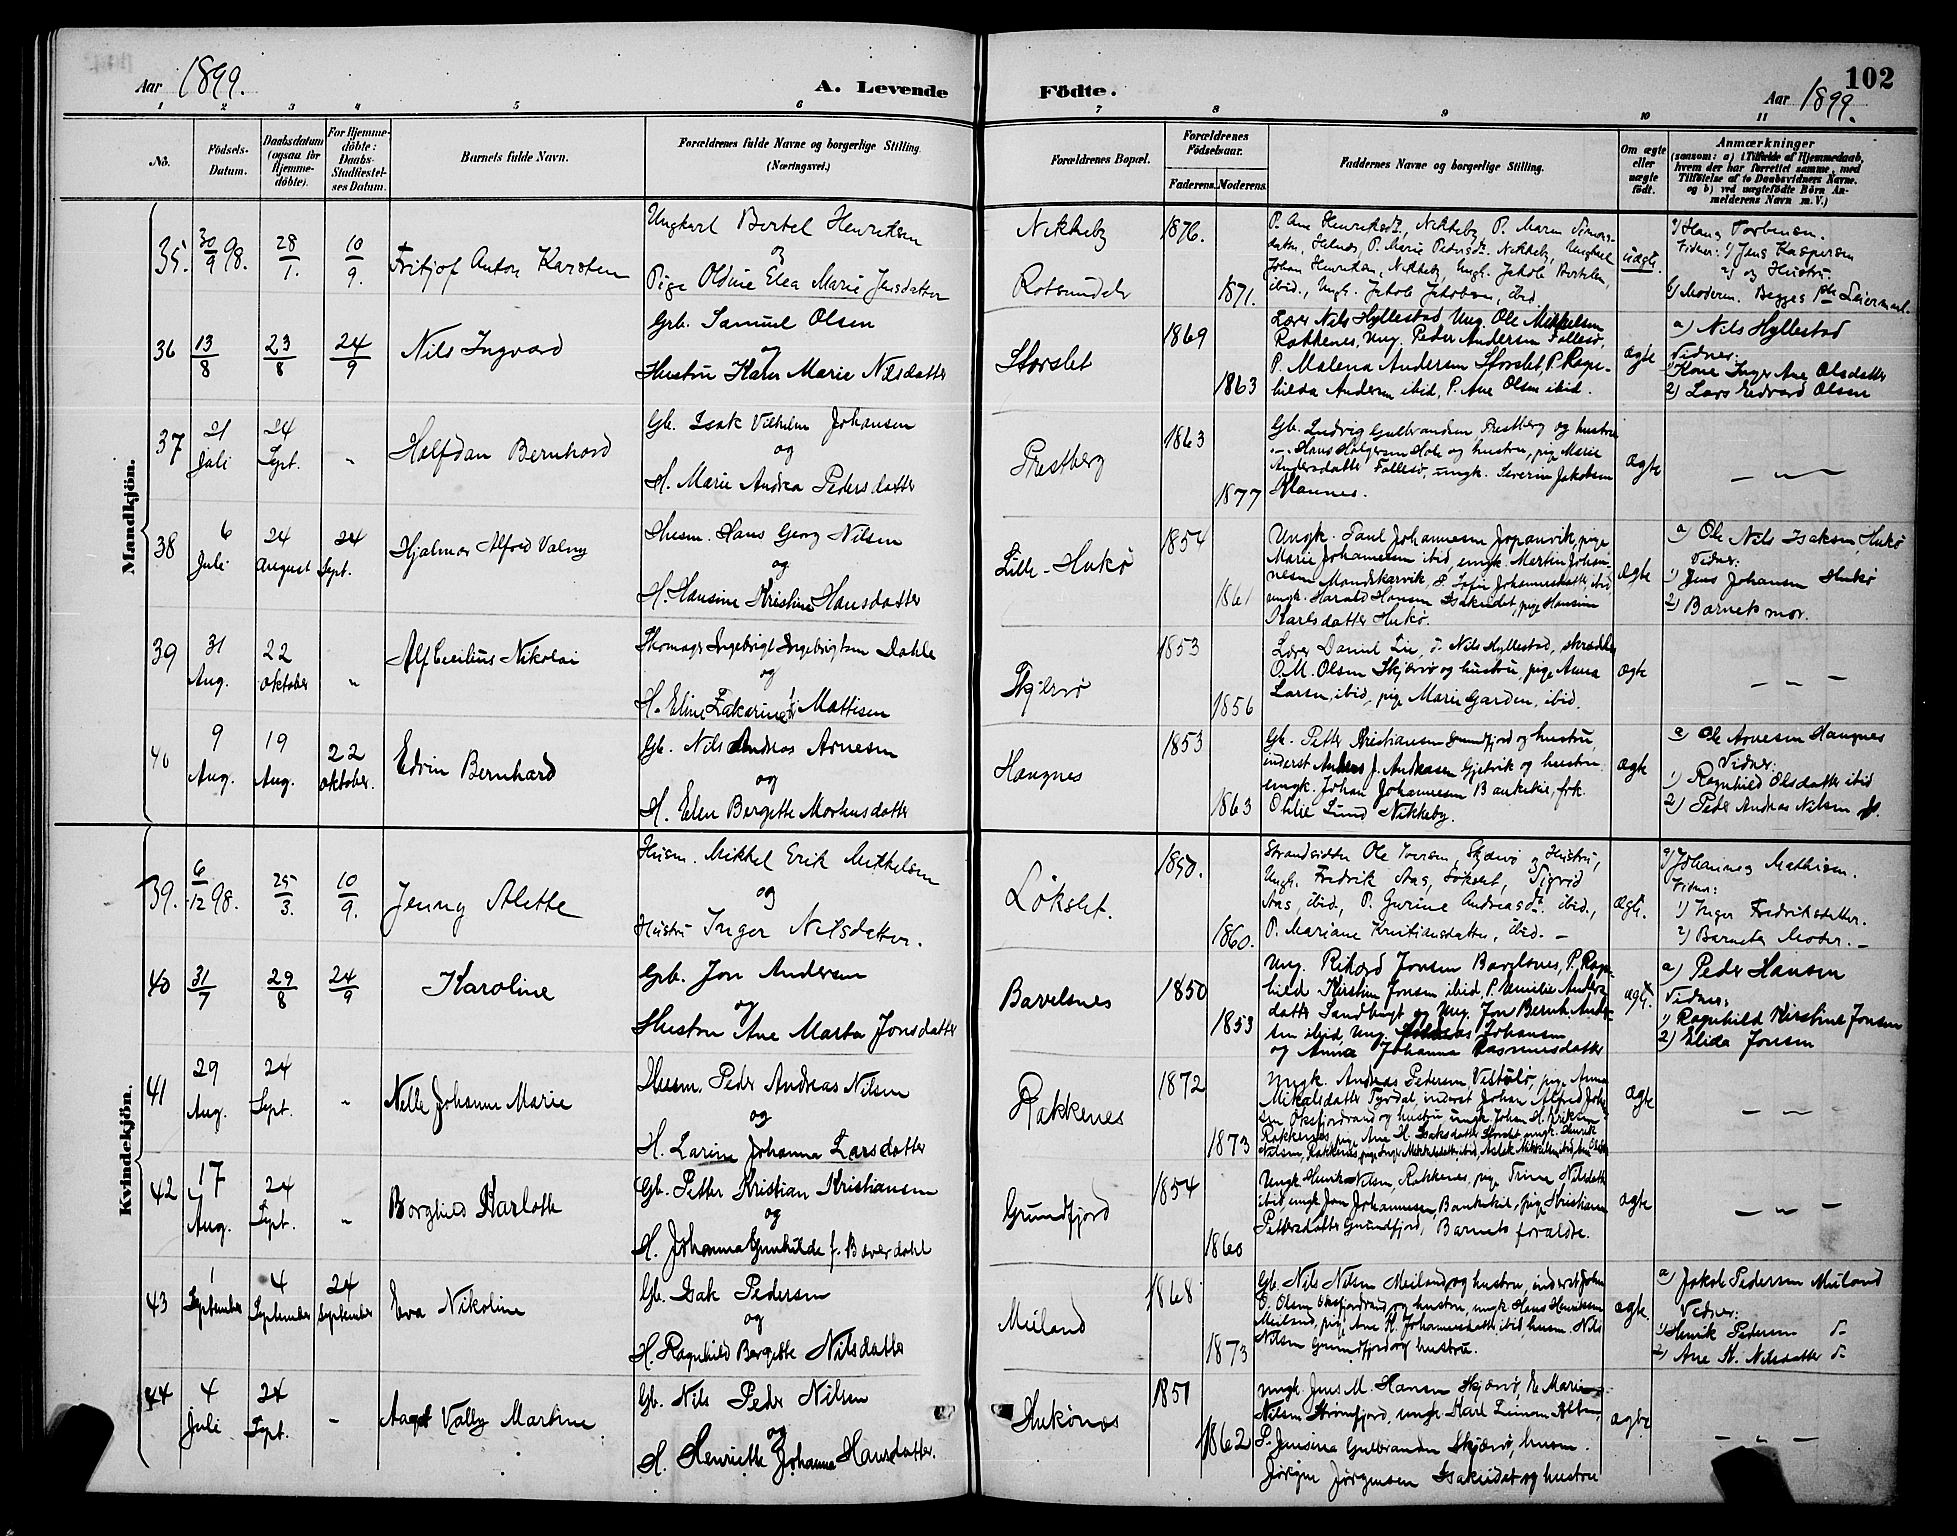 102
Aar 1899.
A. Levende Födte.
Aar 1899.
1 2 3 4 5 6 7 8 9 10 11
No.
Födsels-Datum.
Daabsdatum (ogsaa for Hjemme-döbte).
For Hjemme-döbte: Daabs-Stadfæstel-ses Datum.
Barnets fulde Navn.
Forældrenes fulde Navne og borgerlige Stilling. (Næringsvei.)
Forældrenes Bopæl.
Forældrenes Födselsaar.
Faderens. Moderens.
Faddernes Navne og borgerlige Stilling.
Om ægte eller uægte födt.
Anmærkninger
(saasom: a) i Tilfælde af Hjemmedaab,
hvem der har forrettet samme, med
Tilföielse af to Daabsvidners Navne,
og b) ved uægtefödte Börn An-
melderens Navn m. V.)
Mandkjön.
35. 30/9 98. 28/1. 10/9. Fritjof Anton Karsten
Ungkarl Bertel Henriksen
og
Pige Oldine Elea Marie Jensdatter
Nikkeby
Rotsundelv
1876.
1871.
P. Ane Henriksdt., Nikkeby, P. Maren Simons-
datter, P. Marie Pedersdt. Nikkeby, Ungkarl
Johan Henriksen, Nikkeby, Ungk. Jakob Bertelsen,
ibid., Ungk. Jakob Jakobsen, ibid.
uægte.
Hans Torbensen.
Vidner: 1) Jens Kaspersen
2) og Hustru.
Moderen. Begges Leiermaal.
36 13/8 23/8 24/9 Nils Ingvard
Grb. Samuel Olsen
og
Hustru Karen Marie Nilsdatter
Storslet
1869
1863
Lærer Nils Hyllestad Ung. Ole Mikkelsen
Rakkenes, Ung. Peder Andersen Follesø,
P. Malena Andersen Storslet, P. Ragn-
hilda Andersen ibid, P. Ane Olsen ibid.
ægte
a) Nils Hyllestad
Vidner:
1) Kone Inger Ane Olsdatter
2) Lars Edvard Olsen
37 21 Juli 24 Sept. " Halfdan Bernhard
Gb. Isak Vilhelm Johansen
og
H. Marie Andrea Pedersdatter
Prestberg
1863
1877
Gb. Ludvig Gulbrandsen Prestberg og hustru
Hans Holgersen Hole og hustru, pige Marie
Andersdatter Follesø, ungk. Severin Jakobsen
ægte
— " —
38 6 Juli 24 August 24 Sept. Hjalmar Alfred Valny
Husm. Hans Georg Nilsen
og
H. Hansine Kristine Hansdatter
Lille-Hukø
1854
1861
Ungk. Paul Johannesen pige
Marie Johannesen ibid, ungk. Martin Johan-
nesen P. Sofie Johannesdatter, ibid
ungk. Harald Hansen Isakeidet, pige Hansine
Karlsdatter Hukø.
ægte
a) Ole Nils Isaksen, Hukø
Vidner:
1) Jens Johansen Hukø
2) Barnets mor.
39 31 Aug. 22 oktober " Alf Nikolai
Ingebrigt Ingebrigtsen Dahle
og
H. Eline Zakarine f. Mattisen
Skjærvø
1853
1856
Lærer Daniel Lie, Nils Hyllestad, skrædder
O. M. Olsen Skjærvø og hustru, pige Anna
Larsen, ibid, pige Marie Garden, ibid.
ægte
— — —
40 9 Aug. 19 Aug. 22 oktober. Edvin Bernhard
Gb. Nils Andreas Arnesen
og
H. Elen Bergette Mortensdatter
Haugnes
1853
1863
Gb. Petter Kristiansen Grundfjord og hustru,
inderst Anders J. Andreasen Gjetvik og hustru
ungk. Johan Johannesen Bankekeil, frk.
Othilie Lund Nikkeby.
ægte
a) Ole Arnesen Haugnes
Vidner:
1) Ragnhild Olsdatter ibid
2) Peder Andreas Nilsen
Kvindekjön.
39. 6/12 98. 25/3. 10/9. Jenny Alette
Husm. Mikkel Erik Mikkelsen
og
Hustru Inger Nilsdatter.
Løkslet.
1850.
1860.
Strandsidder Ole Iversen, Skjærvø og Hustru,
Ungk. Fredrik Aas, Løkslet, Sigrid
Aas, ibid, P. Gurine Andreasdt. ibid.,
P. Mariane Kristiansdatter, ibid. —
ægte.
a) Johannes Mathisen.
Vidner:
1) Inger Fredriksdatter.
2) Barnets Moder. —
40 31/7 29/8 24/9 Karoline
Grb. Jon Andersen
og
Hustru Ane Marta Jonsdatter
Bavelsnes
1850
1853
Ung. Rikard Jonsen Bavelsnes, P. Ragn-
hild Kirstine Jonsen ibid, P. Emilie Anders-
datter Sandbugt og Ung. Jon Bernh. Ander-
sen ibid, Ung. Johansen
og Anna Johanna Rasmusdatter
ægte.
a) Peder Hansen
Vidner:
1) Ragnhild Kirstine Jonsen
2) Elida Jonsen
41 29 Aug. 24 Sept. " Nelle Johanne Marie
Husm. Peder Andreas Nilsen
og
H. Larine Johanna Larsdatter
Rakkenes
1872
1873
Ungk. Andreas Pedersen, pige Anna
Mikalsdatter inderst Johan Alfred Johan-
sen Oksfjordvand og hustru ungk. Johan H. Eriksen
Rakkenes, pige Ane H. Isaksdatter Storslet, ungk. Henrik
Nilsen, Rakkenes, pige Inger Mikkelsdatter, ibid
ægte
— " —
42 17 Aug. 24 Sept. " Borghild Karlotte
Gb. Petter Kristian Kristiansen
og
H. Johanna Gunhilde f. Bæverdahl
Grundfjord
1854
1860
Ungk. Henrik Nilsen, Rakkenes, pige Trine Nilsdatter
ibid, ungk. Jon Johannesen, Bankekeil, pige Kristiane
Pettersdatter Grundfjord, Barnets forældre.
ægte
— " —
43 1 September 4 September 24 September Eva Nikoline
Gb. Isak Pedersen
og
H. Ragnhild Bergette Nilsdatter
Meiland
1868
1873
Gb. Nils Nilsen Meiland og hustru, inderst Johan
O. Olsen Oksfjordvand og hustru, ungk. Hans Henriksen
Meiland, pige Ane H. Johannesdatter ibid, husm. Nils
Nilsen Grundfjord og hustru.
ægte.
a) Jakob Pedersen Meiland
Vidner:
1) Henrik Pedersen do
2) Ane H. Nilsdatter do
44 4 Juli 24 Sept. — Aagot Valby Martine
Gb. Nils Peder Nilsen
og
H. Henriette Johanna Hansdatter.
Hukønes
1851
1862
Ungk. Jens M. Hansen Skjærvø, Marie
Nilsen Strømfjord, ungk. Karl
P. Jensine Gulbrandsen Skjærvø, husm.
Jørgen Jørgensen Isakeidet og hustru
ægte
— " —